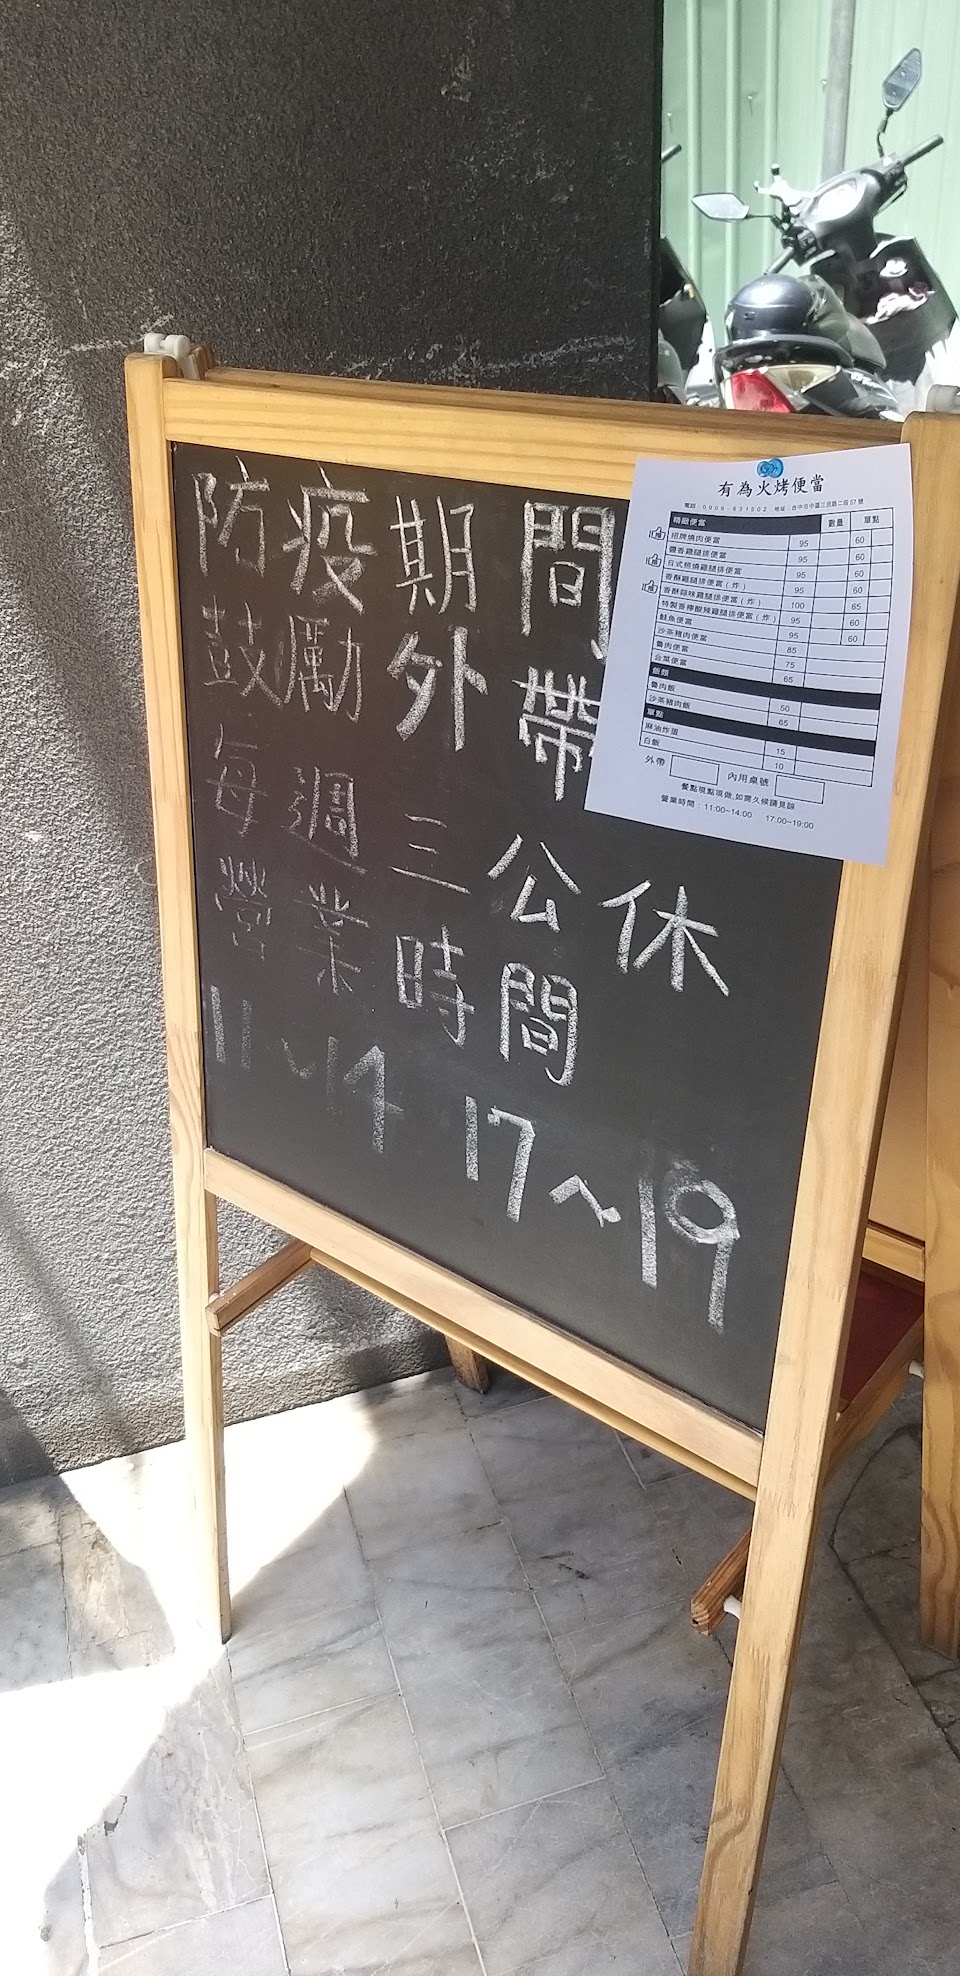 防疫期間
鼓勵外帶
每週三公休
營業時間
11~14 17~19
有為火烤便當
電話:0909-631502 地址:台中市中區三民路二段57號
精緻便當 數量 單點
招牌燒肉便當 95 60
醬香雞腿排便當 95 60
日式照燒雞腿排便當 95 60
香酥雞腿排便當(炸) 95 60
香酥蒜味雞腿排便當(炸) 100 65
特製香檸酸辣雞腿排便當(炸) 95 60
鮭魚便當 95 60
沙茶豬肉便當 85
魯肉便當 75
合菜便當 65
飯類
魯肉飯 50
沙茶豬肉飯 65
單點
麻油炸蛋 15
白飯 10
外帶 內用桌號
餐點現點現做,如需久候請見諒
營業時間:11:00~14:00 17:00~19:00